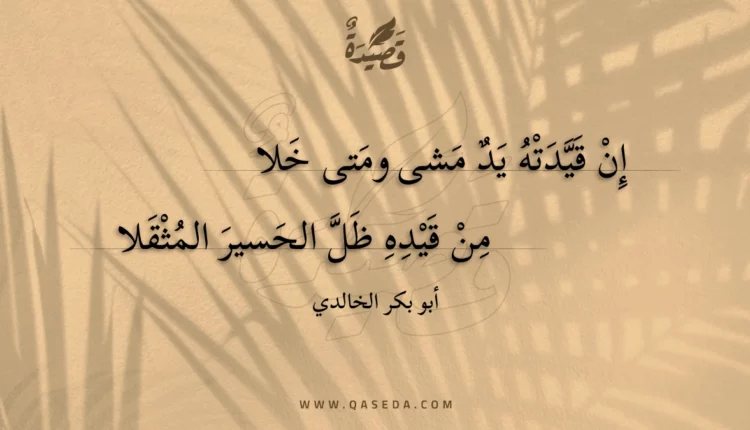 قَصِيدَةٌ
إِنْ قَيَّدَتْهُ يَدٌ مَشى ومَتى خَلا
مِنْ قَيْدِهِ ظَلَّ الحَسيرَ المُثْقَلا
أبو بكر الخالدي
WWW.QASEDA.COM